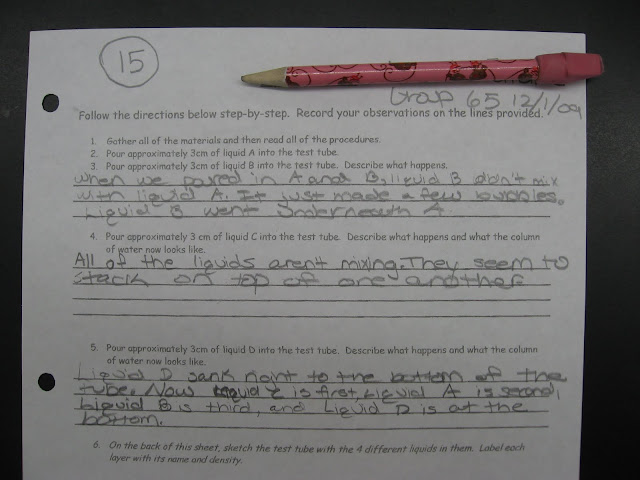 15
Group 65 12/1/09
Follow the directions below step-by-step. Record your observations on the lines provided.
1. Gather all of the materials and then read all of the procedures.
2. Pour approximately 3cm of liquid A into the test tube.
3. Pour approximately 3cm of liquid B into the test tube. Describe what happens.
When we poured in A and B, liquid B didn't mix
with liquid A. It just made a few bubbles.
Liquid B went underneath A
4. Pour approximately 3 cm of liquid C into the test tube. Describe what happens and what the column
of water now looks like.
All of the liquids aren't mixing. They seem to
stack on top of one another
5. Pour approximately 3cm of liquid D into the test tube. Describe what happens and what the column
of water now looks like.
Liquid D sank right to the bottom of the
tube. Now liquid C is first, Liquid A is second,
Liquid B is third, and Liquid D is at the
bottom.
6. On the back of this sheet, sketch the test tube with the 4 different liquids in them. Label each
layer with its name and density.